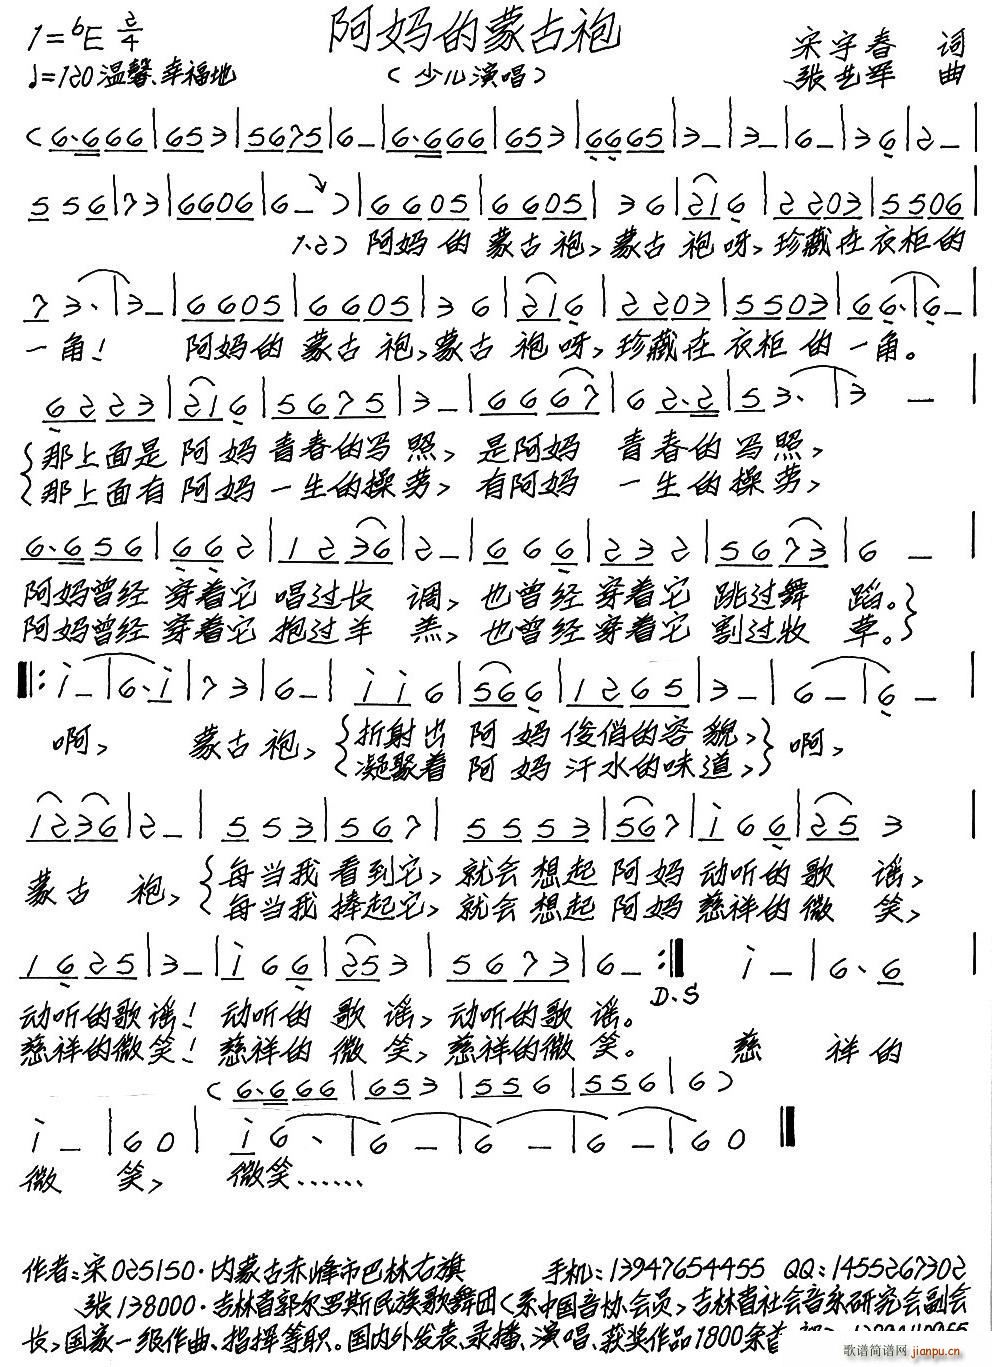 阿妈的蒙古袍
1=♭E 2/4
(少儿演唱)
宋宇春 词
♩=120 温馨、幸福地
张艺军 曲
(6·666|653|5675|6–|6·666|653|6665|3–|3–|6–|36|2–|
556|73|6606|6–)|6605|6605|36|216|2203|5506|
1.2) 阿妈的蒙古袍,蒙古袍呀,珍藏在衣柜的
73·|3–|6605|6605|36|216|2203|5503|66·|6–|
一角! 阿妈的蒙古袍,蒙古袍呀,珍藏在衣柜的一角。
6223|216|5675|3–|6667|62·2|53·|3 –|
那上面是阿妈青春的写照,是阿妈 青春的写照,
那上面有阿妈一生的操劳,有阿妈 一生的操劳,
6·656|662|1236|2–|666|232|5673|6 –|
阿妈曾经穿着它唱过长调,也曾经穿着它跳过舞蹈。
阿妈曾经穿着它抱过羊羔,也曾经穿着它割过牧草。
‖:i–|6·i|73|6–|ii6|566|1265|3–|6–|6–|
啊, 蒙古袍, 折射出阿妈俊俏的容貌, 啊,
凝聚着阿妈汗水的味道,
1236|2–|553|567|5553|567|i66|253|
蒙古袍, 每当我看到它,就会想起阿妈动听的歌谣,
每当我捧起它,就会想起阿妈慈祥的微笑,
1625|3–|i66|253|5673|6–:‖ i–|6·6|
D.S
动听的歌谣!动听的歌谣,动听的歌谣。
慈祥的微笑!慈祥的微笑,慈祥的微笑。 慈祥的
(6·666|653|556|556|6)
i–|60|i6·|6–|6–|6–|60‖
微笑, 微笑……
作者:宋 025150·内蒙古赤峰市巴林右旗 手机:13947654455 QQ:1455267302
张 138000·吉林省郭尔罗斯民族歌舞团(系中国音协会员,吉林省社会音乐研究会副会
长,国家一级作曲、指挥等职。国内外发表、录播、演唱、获奖作品1800余首
歌谱简谱网 jianpu.cn